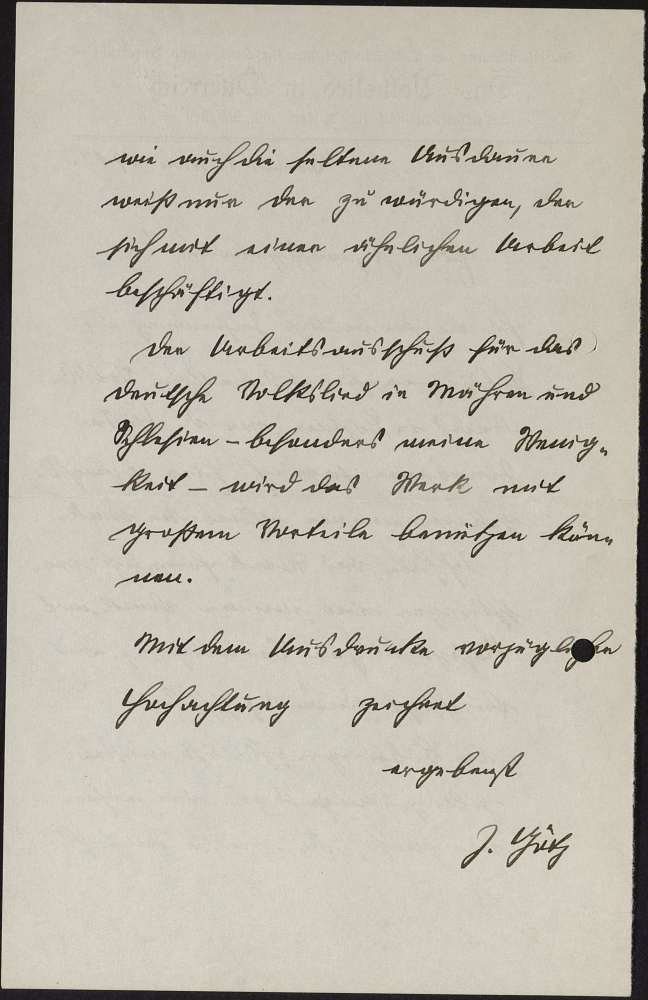 wie auch die seltene Ausdauer
weiß nur der zu würdigen, der
sich mit einer ähnlichen Arbeit
beschäftigt.
Der Arbeitsausschuß für das
deutsche Volkslied in Mähren und
Schlesien – besonders meine Wenig-
keit – wird das Werk mit
großem Vorteile benützen kön-
nen.
Mit dem Ausdrucke vorzüglichen
Hochachtung zeichnet
ergebenst
J. Götz